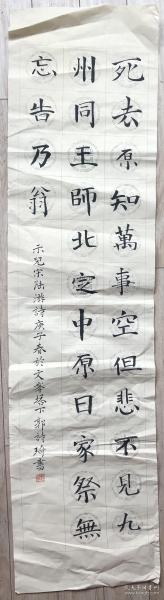 死去原知萬事空但悲不見九
州同王師北定中原日家祭無
忘告乃翁
示兒宋陸游詩庚子春於文章橋下郭詩琦書